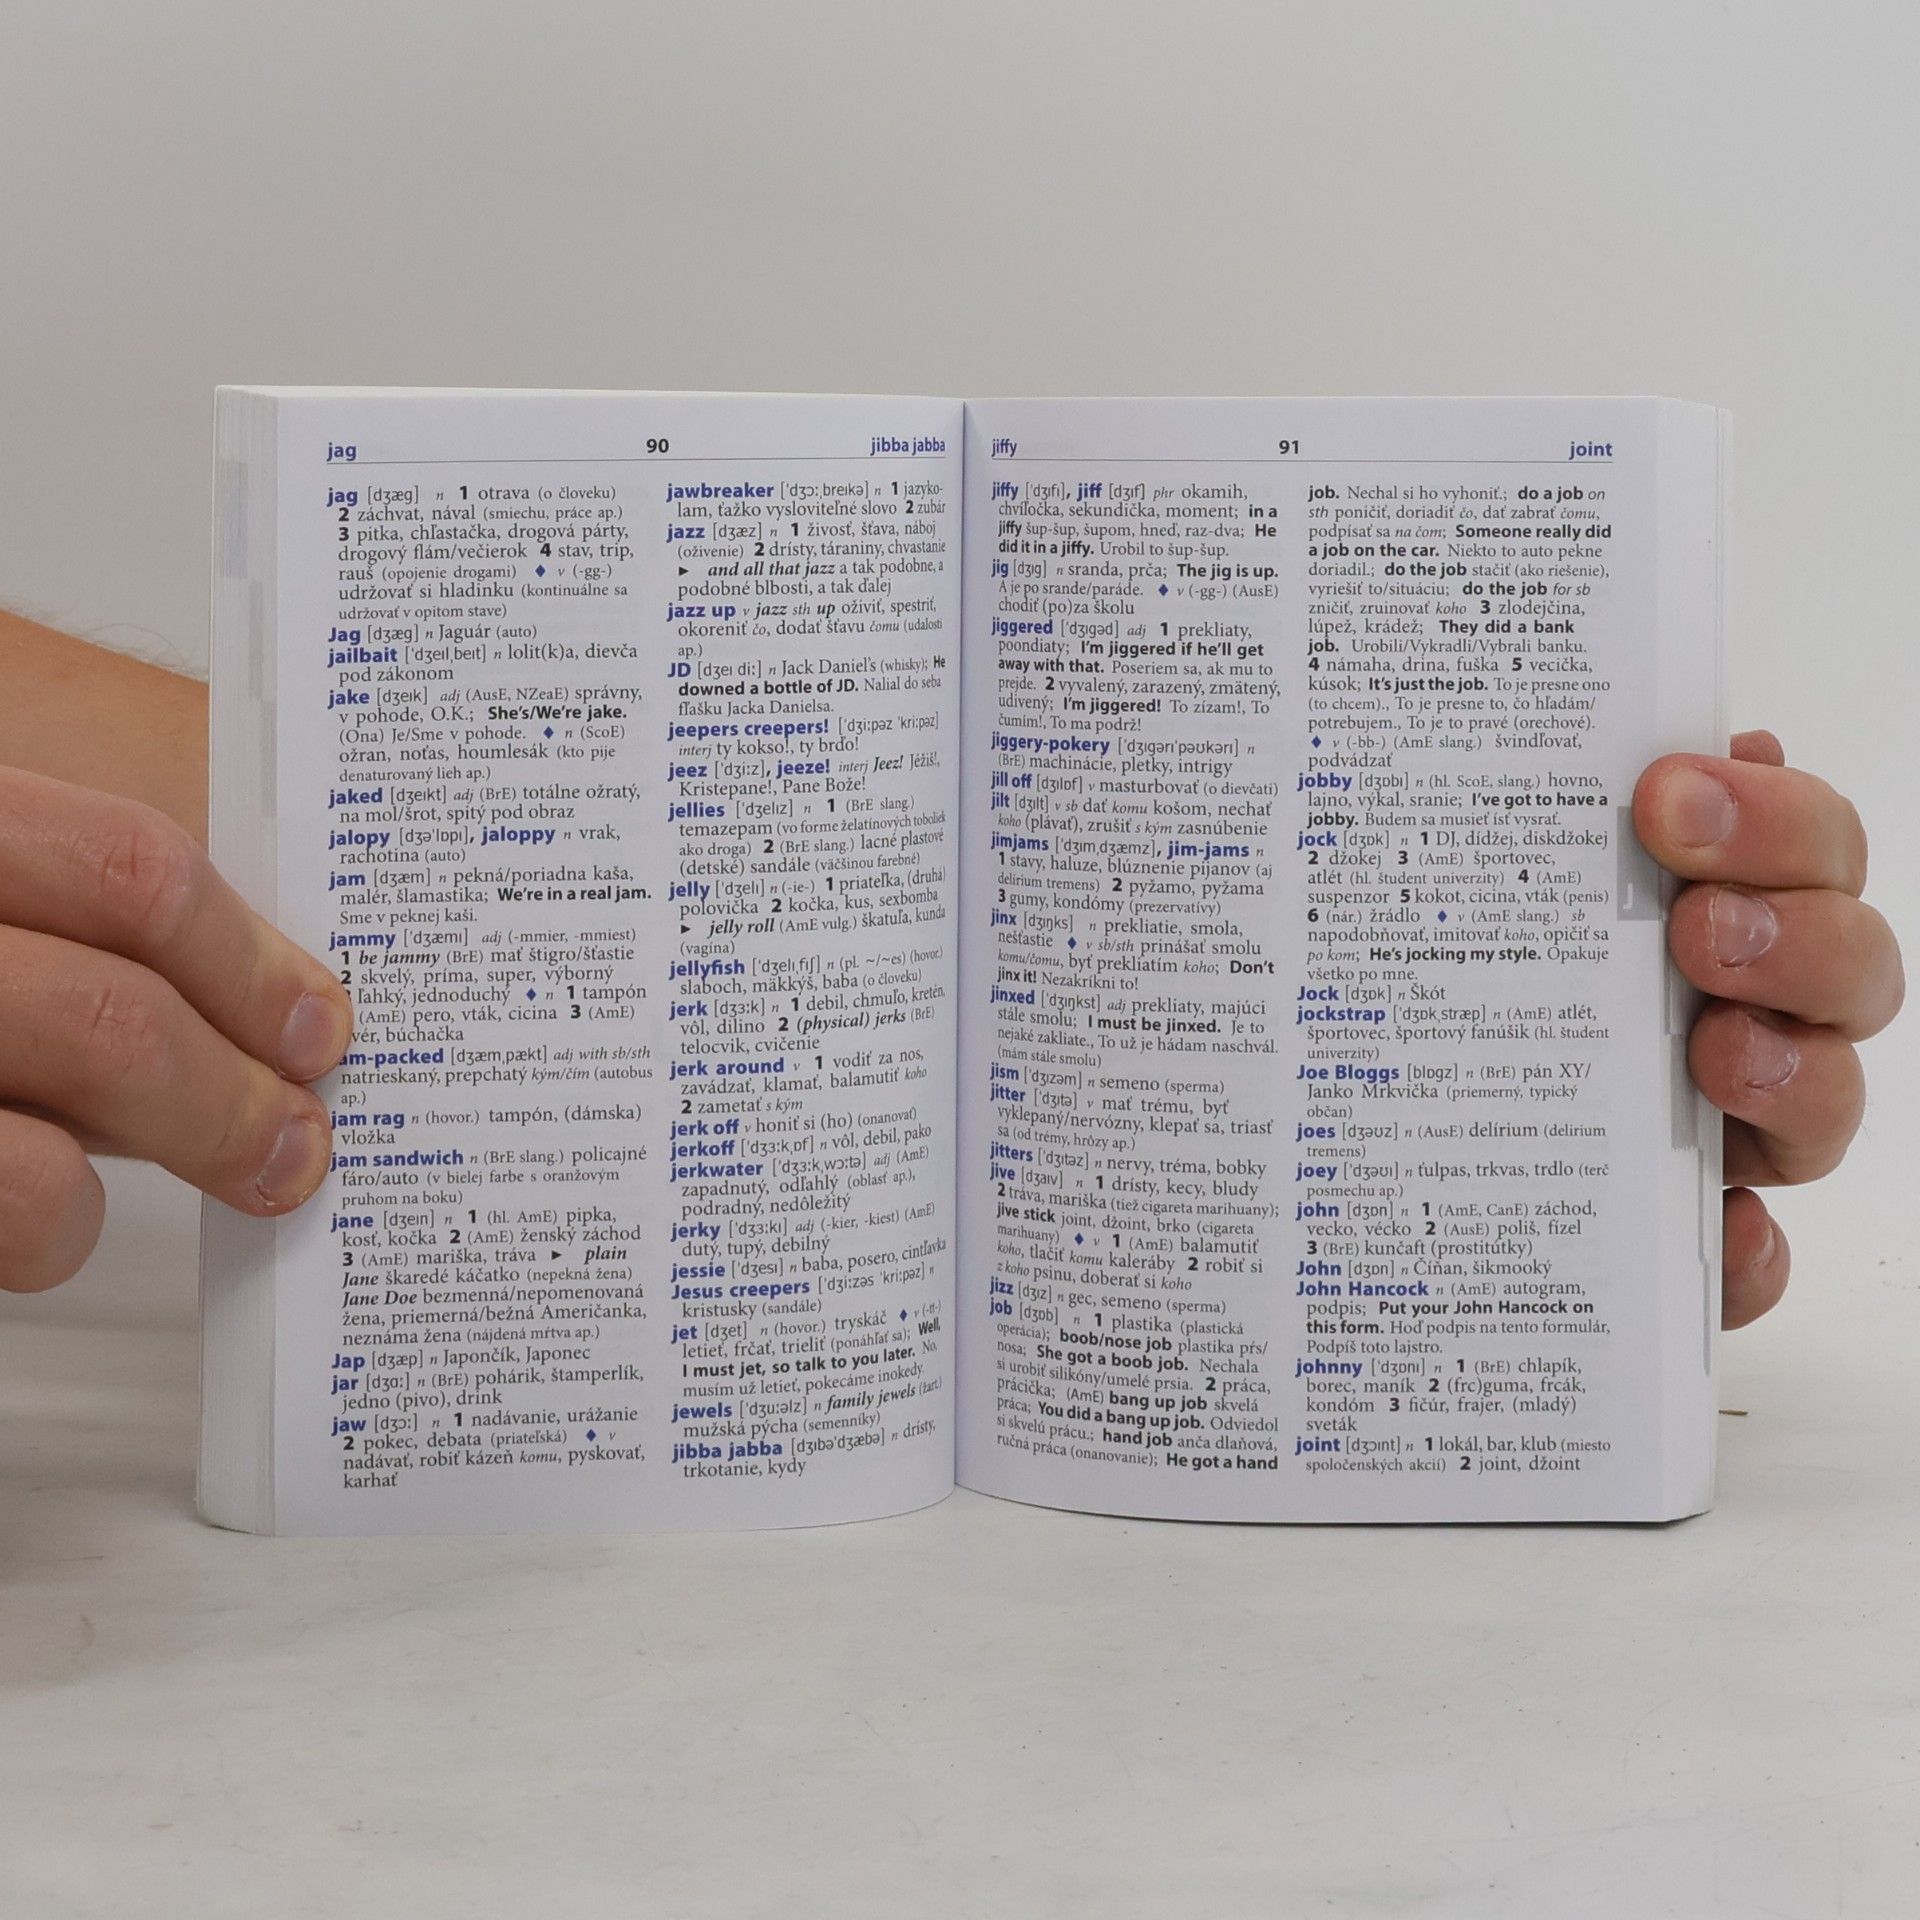 jag
90
jibba jabba
jag [dʒæg] n 1 otrava (o človeku)
2 záchvat, nával (smiechu, práce ap.)
3 pitka, chľastačka, drogová párty,
drogový flám/večierok 4 stav, trip,
rauš (opojenie drogami) ♦ v (-gg-)
udržovať si hladinku (kontinuálne sa
udržovať v opitom stave)
Jag [dʒæg] n Jaguár (auto)
jailbait [ˈdʒeɪlˌbeɪt] n lolit(k)a, dievča
pod zákonom
jake [dʒeɪk] adj (AusE, NZeaE) správny,
v pohode, O.K.; She's/We're jake.
(Ona) Je/Sme v pohode. ♦ n (ScoE)
ožran, noťas, houmlesák (kto pije
denaturovaný lieh ap.)
jaked [dʒeɪkt] adj (BrE) totálne ožratý,
na mol/šrot, spitý pod obraz
jalopy [dʒəˈlɒpɪ], jaloppy n vrak,
rachotina (auto)
jam [dʒæm] n pekná/poriadna kaša,
malér, šlamastika; We're in a real jam.
Sme v peknej kaši.
jammy [ˈdʒæmɪ] adj (-mmier, -mmiest)
1 be jammy (BrE) mať štigro/šťastie
2 skvelý, príma, super, výborný
ľahký, jednoduchý ♦ n 1 tampón
(AmE) pero, vták, cicina 3 (AmE)
vér, búchačka
am-packed [dʒæmˌpækt] adj with sb/sth
natrieskaný, prepchatý kým/čím (autobus
ap.)
jam rag n (hovor.) tampón, (dámska)
vložka
jam sandwich n (BrE slang.) policajné
fáro/auto (v bielej farbe s oranžovým
pruhom na boku)
jane [dʒeɪn] n 1 (hl. AmE) pipka,
kosť, kočka 2 (AmE) ženský záchod
3 (AmE) mariška, tráva ► plain
Jane škaredé káčatko (nepekná žena)
Jane Doe bezmenná/nepomenovaná
žena, priemerná/bežná Američanka,
neznáma žena (nájdená mŕtva ap.)
Jap [dʒæp] n Japončík, Japonec
jar [dʒɑː] n (BrE) pohárik, štamperlík,
jedno (pivo), drink
jaw [dʒɔː] n 1 nadávanie, urážanie
2 pokec, debata (priateľská) ♦ v
nadávať, robiť kázeň komu, pyskovať,
karhať
jawbreaker [ˈdʒɔːˌbreɪkə] n 1 jazyko-
lam, ťažko vysloviteľné slovo 2 zubár
jazz [dʒæz] n 1 živosť, šťava, náboj
(oživenie) 2 drísty, táraniny, chvastanie
► and all that jazz a tak podobne, a
podobné blbosti, a tak ďalej
jazz up v jazz sth up oživiť, spestriť,
okoreniť čo, dodať šťavu čomu (udalosti
ap.)
JD [dʒeɪ diː] n Jack Daniel's (whisky); He
downed a bottle of JD. Nalial do seba
fľašku Jacka Danielsa.
jeepers creepers! [ˈdʒiːpəz ˈkriːpəz]
interj ty kokso!, ty brďo!
jeez [ˈdʒiːz], jeeze! interj Jeez! Ježiš!,
Kristepane!, Pane Bože!
jellies [ˈdʒelɪz] n 1 (BrE slang.)
temazepam (vo forme želatínových toboliek
ako droga) 2 (BrE slang.) lacné plastové
(detské) sandále (väčšinou farebné)
jelly [ˈdʒelɪ] n (-ie-) 1 priateľka, (druhá)
polovička 2 kočka, kus, sexbomba
► jelly roll (AmE vulg.) škatuľa, kunda
(vagína)
jellyfish [ˈdʒelɪˌfɪʃ] n (pl. ~/~es) (hovor.)
slaboch, mäkkýš, baba (o človeku)
jerk [dʒɜːk] n 1 debil, chmuľo, kretén,
vôl, dilino 2 (physical) jerks (BrE)
telocvik, cvičenie
jerk around v 1 vodiť za nos,
zavádzať, klamať, balamutiť koho
2 zametať s kým
jerk off v honiť si (ho) (onanovať)
jerkoff [ˈdʒɜːkˌɒf] n vôl, debil, pako
jerkwater [ˈdʒɜːkˌwɔːtə] adj (AmE)
zapadnutý, odľahlý (oblasť ap.),
podradný, nedôležitý
jerky [ˈdʒɜːkɪ] adj (-kier, -kiest) (AmE)
dutý, tupý, debilný
jessie [ˈdʒesɪ] n baba, posero, cintľavka
Jesus creepers [ˈdʒiːzəs ˈkriːpəz] n
kristusky (sandále)
jet [dʒet] n (hovor.) tryskáč ♦ v (-tt-)
letieť, frčať, trieliť (ponáhľať sa); Well,
I must jet, so talk to you later. No,
musím už letieť, pokecáme inokedy.
jewels [ˈdʒuːəlz] n family jewels (žart.)
mužská pýcha (semenníky)
jibba jabba [dʒɪbəˈdʒæbə] n drísty,
trkotanie, kydy
jiffy
91
joint
jiffy [ˈdʒɪfɪ], jiff [dʒɪf] phr okamih,
chvíľočka, sekundička, moment; in a
jiffy šup-šup, šupom, hneď, raz-dva; He
did it in a jiffy. Urobil to šup-šup.
jig [dʒɪg] n sranda, prča; The jig is up.
A je po srande/paráde. ♦ v (-gg-) (AusE)
chodiť (po)za školu
jiggered [ˈdʒɪgəd] adj 1 prekliaty,
poondiaty; I'm jiggered if he'll get
away with that. Poseriem sa, ak mu to
prejde. 2 vyvalený, zarazený, zmätený,
udivený; I'm jiggered! To zízam!, To
čumím!, To ma podrž!
jiggery-pokery [ˈdʒɪgərɪˈpəʊkərɪ] n
(BrE) machinácie, pletky, intrigy
jill off [dʒɪlɒf] v masturbovať (o dievčati)
jilt [dʒɪlt] v sb dať komu košom, nechať
koho (plávať), zrušiť s kým zasnúbenie
jimjams [ˈdʒɪmˌdʒæmz], jim-jams n
1 stavy, haluze, blúznenie pijanov (aj
delirium tremens) 2 pyžamo, pyžama
3 gumy, kondómy (prezervatívy)
jinx [dʒɪŋks] n prekliatie, smola,
nešťastie ♦ v sb/sth prinášať smolu
komu/čomu, byť prekliatím koho; Don't
jinx it! Nezakríkni to!
jinxed [ˈdʒɪŋkst] adj prekliaty, majúci
stále smolu; I must be jinxed. Je to
nejaké zakliate., To už je hádam naschvál.
(mám stále smolu)
jism [ˈdʒɪzəm] n semeno (sperma)
jitter [ˈdʒɪtə] v mať trému, byť
vyklepaný/nervózny, klepať sa, triasť
sa (od trémy, hrôzy ap.)
jitters [ˈdʒɪtəz] n nervy, tréma, bobky
jive [dʒaɪv] n 1 drísty, kecy, bludy
2 tráva, mariška (tiež cigareta marihuany);
jive stick joint, džoint, brko (cigareta
marihuany) ♦ v 1 (AmE) balamutiť
koho, tlačiť komu kaleráby 2 robiť si
z koho psinu, doberať si koho
jizz [dʒɪz] n gec, semeno (sperma)
job [dʒɒb] n 1 plastika (plastická
operácia); boob/nose job plastika pŕs/
nosa; She got a boob job. Nechala
si urobiť silikóny/umelé prsia. 2 práca,
prácička; (AmE) bang up job skvelá
práca; You did a bang up job. Odviedol
si skvelú prácu.; hand job anča dlaňová,
ručná práca (onanovanie); He got a hand
job. Nechal si ho vyhoniť.; do a job on
sth poničiť, doriadiť čo, dať zabrať čomu,
podpísať sa na čom; Someone really did
a job on the car. Niekto to auto pekne
doriadil.; do the job stačiť (ako riešenie),
vyriešiť to/situáciu; do the job for sb
zničiť, zruinovať koho 3 zlodejčina,
lúpež, krádež; They did a bank
job. Urobili/Vykradli/Vybrali banku.
4 námaha, drina, fuška 5 vecička,
kúsok; It's just the job. To je presne ono
(to chcem)., To je presne to, čo hľadám/
potrebujem., To je to pravé (orechové).
♦ v (-bb-) (AmE slang.) švindľovať,
podvádzať
jobby [dʒɒbɪ] n (hl. ScoE, slang.) hovno,
lajno, výkal, sranie; I've got to have a
jobby. Budem sa musieť ísť vysrať.
jock [dʒɒk] n 1 DJ, dídžej, diskdžokej
2 džokej 3 (AmE) športovec,
atlét (hl. študent univerzity) 4 (AmE)
suspenzor 5 kokot, cicina, vták (penis)
6 (nár.) žrádlo ♦ v (AmE slang.) sb
napodobňovať, imitovať koho, opičiť sa
po kom; He's jocking my style. Opakuje
všetko po mne.
Jock [dʒɒk] n Škót
jockstrap [ˈdʒɒkˌstræp] n (AmE) atlét,
športovec, športový fanúšik (hl. študent
univerzity)
Joe Bloggs [blɒgz] n (BrE) pán XY/
Janko Mrkvička (priemerný, typický
občan)
joes [dʒəʊz] n (AusE) delírium (delirium
tremens)
joey [ˈdʒəʊɪ] n ťulpas, trkvas, trdlo (terč
posmechu ap.)
john [dʒɒn] n 1 (AmE, CanE) záchod,
vecko, vécko 2 (AusE) poliš, fízel
3 (BrE) kunčaft (prostitútky)
John [dʒɒn] n Číňan, šikmooký
John Hancock n (AmE) autogram,
podpis; Put your John Hancock on
this form. Hoď podpis na tento formulár,
Podpíš toto lajstro.
johnny [ˈdʒɒnɪ] n 1 (BrE) chlapík,
borec, maník 2 (frc)guma, frcák,
kondóm 3 fičúr, frajer, (mladý)
sveták
joint [dʒɔɪnt] n 1 lokál, bar, klub (miesto
spoločenských akcií) 2 joint, džoint
J